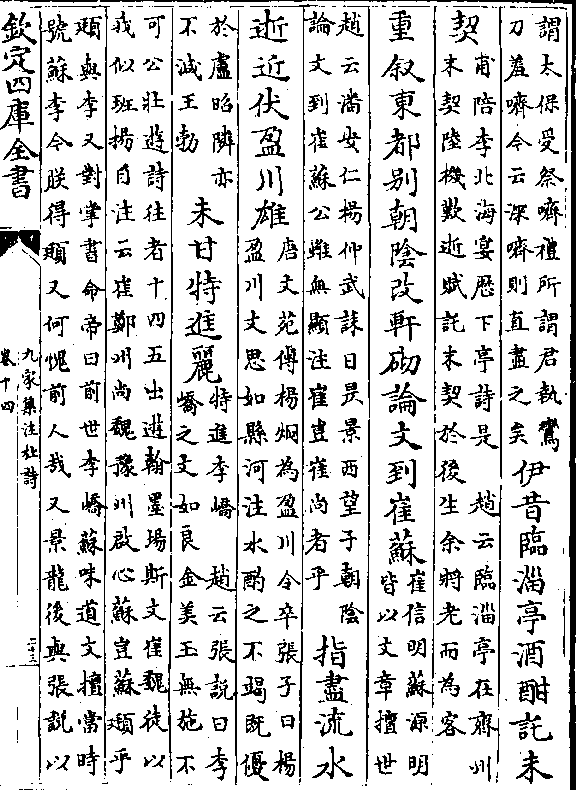 謂太保受祭嚌禮所謂君執鸞
刀羞嚌今云深嚌則直盡之矣
伊昔臨淄亭酒酣託末
契
甫陪李北海宴歷下亭詩是 趙云臨淄亭在齊州
末契陸機歎逝賦託末契於後生余將老而為客
重叙東都别朝陰改軒砌論文到崔蘇
崔信明蘇源明
皆以文章擅世
趙云潘安仁楊仲武誄日昃景西望子朝陰
論文到崔蘇公雖無顯注崔豈崔尚者乎
指盡流水
逝近伏盈川雄
唐文苑傳楊炯為盈川令卒張子曰楊
盈川文思如縣河注水酌之不竭既優
於盧昭隣亦
不減王勃
未甘特進麗
特進李嶠 趙云張說曰李
嶠之文如良金美玉無施不
可公壯遊詩往者十四五出遊翰墨場斯文崔魏徒以
我似班揚自注云崔鄭州尚魏豫州啟心蘇豈蘇頲乎
頲與李乂對掌書命帝曰前世李嶠蘇味道文擅當時
號蘇李今朕得頲乂何愧前人哉又景龍後與張說以
欽定四庫全書
九家集注杜詩
卷十四
二十三